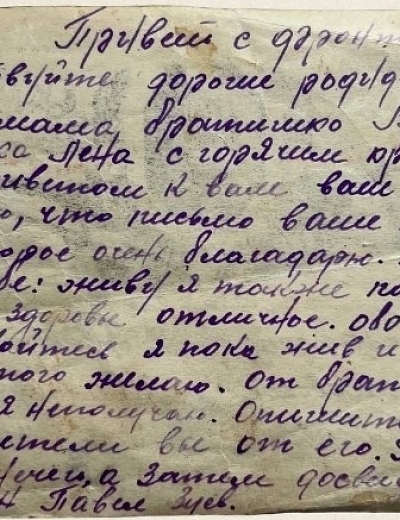 Привет с фронт
вуйте дорогие роди
мама, братишко
ка Лена с горячим кр
иветом к вам ваш
ю, что письмо ваше
орое очень благадарю.
бе: живу я также по
здоровье отличное. обо
ойтесь я пока жив и
того желаю. от брат
я неполучаю. Опишит
чтели вы от его.
нечего, а затем досви
Н Павел Зуев.